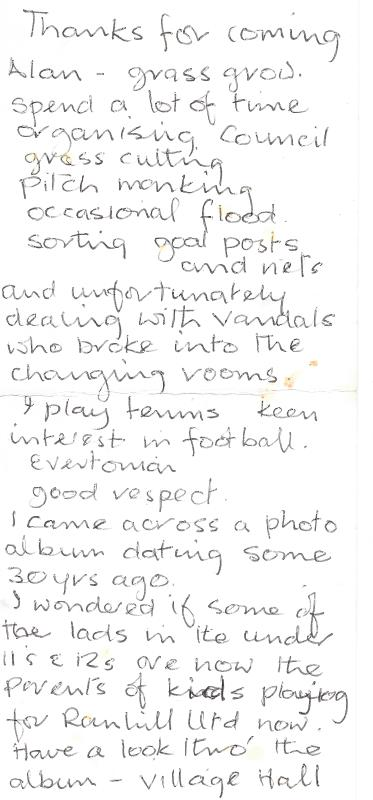 Thanks for coming
Alan - grass grow.
Spend a lot of time
organising Council
grass cutting
pitch marking
occasional flood.
sorting goal posts
and nets
and unfortunately
dealing with vandals
who broke into the
changing rooms.
I play tennis keen
interest in football.
Evertonian
good respect.
I came across a photo
album dating some
30 yrs ago.
I wondered if some of
the lads in the under
11's & 12s are now the
parents of kids playing
for Rainhill Utd now.
Have a look 'thro' the
album - Village Hall